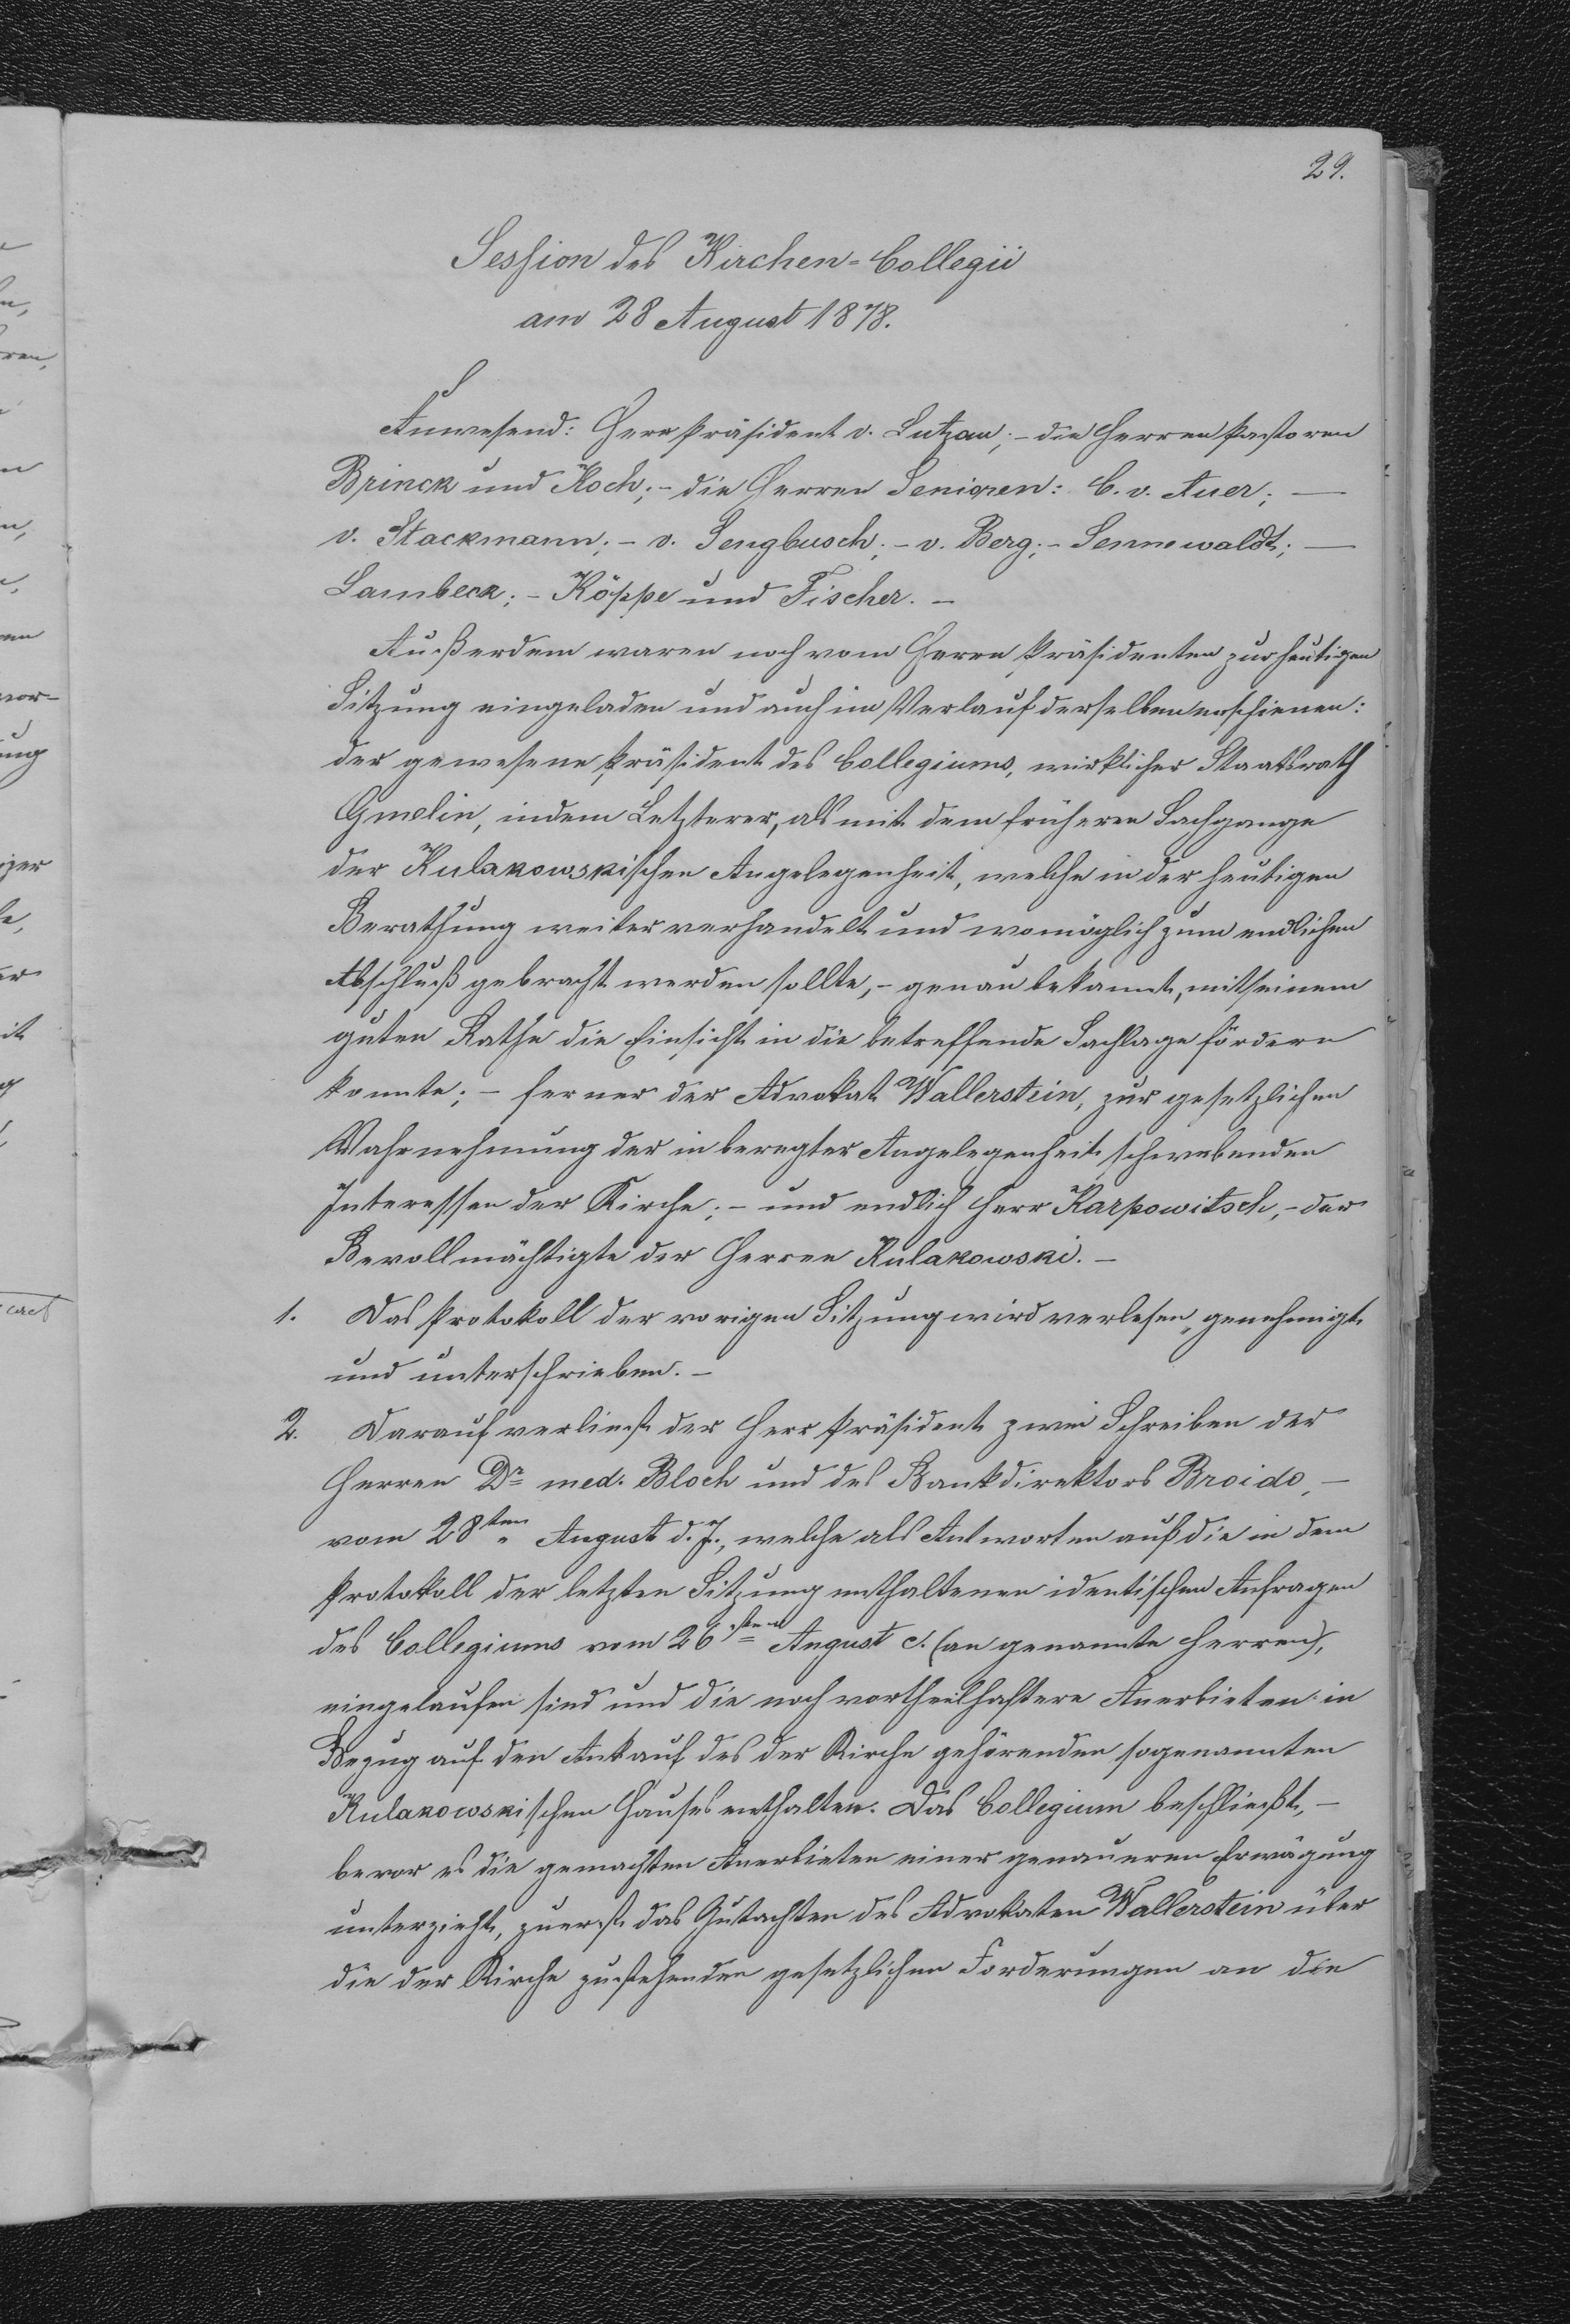 29.
Session des Kirchen-Collegii
am 28 August 1878.
Anwesend: Herr Präsident v. Lutzau; – die Herren Pastoren
Brinck und Koch; – die Herren Senioren: C. v. Auer; –
v. Stackmann; – v. Sengbusch; – v. Berg; – Sennewaldt; –
Lambeck; – Köppe und Fischer. –
Außerdem waren noch vom Herrn Präsidenten zur heutigen
Sitzung eingeladen und auch im Verlauf derselben erschienen:
der gewesene Präsident des Collegiums, wirklicher Staatsrath
Gmelin, indem Letzterer, als mit dem früheren Sachgange
der Kulakowskischen Angelegenheit, welche in der heutigen
Berathung weiter verhandelt und womöglich zum endlichen
Abschluß gebracht werden sollte, – genau bekannt, mit seinem
guten Rathe die Einsicht in die betreffende Sachlage fördern
konnte; – ferner der Advokat Wallerstein, zur gesetzlichen
Wahrnehmung der in beregter Angelegenheit schwebenden
Interessen der Kirche; – und endlich Herr Karpowitsch, – der
Bevollmächtigte der Herren Kulakowski. –
1. Das Protokoll der vorigen Sitzung wird verlesen, genehmigt
und unterschrieben. –
2. Darauf verliest der Herr Präsident zwei Schreiben der
Herren Dr med. Bloch und des Bankdirektors Broido, –
vom 28ten August d. J., welche als Antworten auf die in dem
Protokoll der letzten Sitzung enthaltenen identischen Anfragen
des Collegiums vom 26sten August c. (an genannte Herren),
eingelaufen sind und die noch vortheilhaftere Anerbieten in
Bezug auf den Ankauf des der Kirche gehörenden sogenannten
Kulakowskischen Hauses enthalten. Das Collegium beschließt, –
bevor es die gemachten Anerbieten einer genaueren Erwägung
unterzieht, zuerst das Gutachten des Advokaten Wallerstein über
die der Kirche zustehenden gesetzlichen Forderungen an die